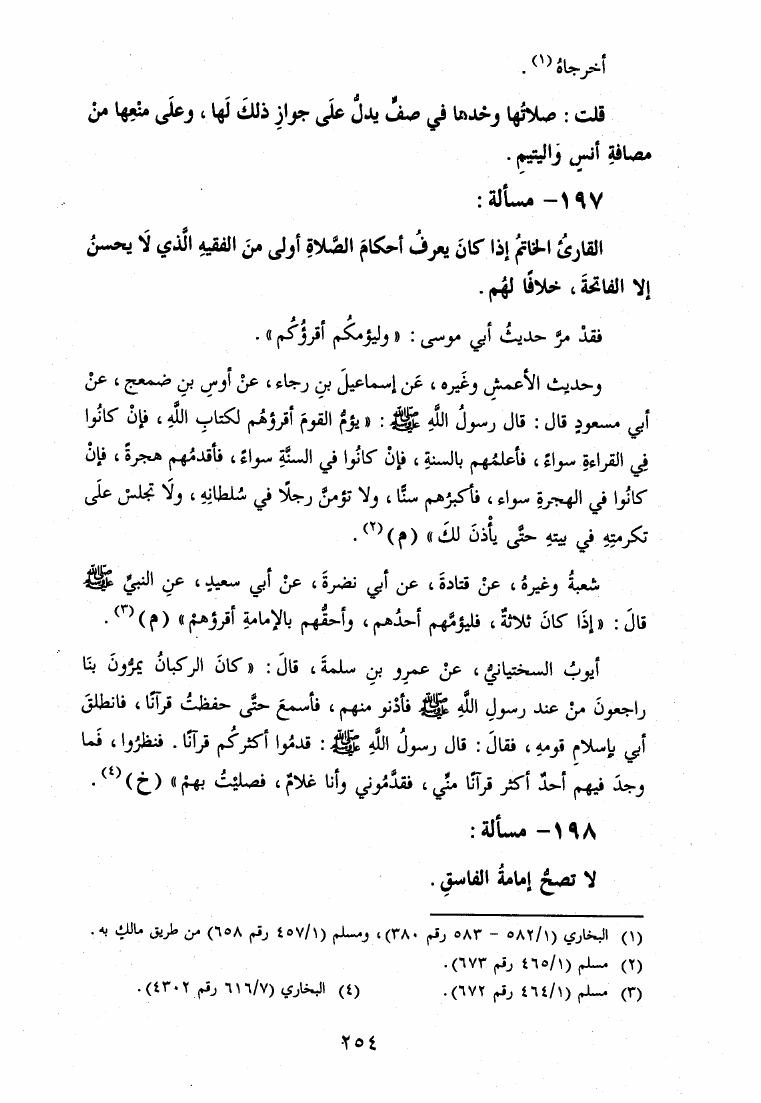 أخرجاهُ (١) .
قلت : صلاتُها وحْدها في صفٍّ يدلُّ علَى جوازِ ذلكَ لَها ، وعلَى منْعِها منْ
مصافةِ أنسٍ وَاليتيمِ .
١٩٧- مسألة :
القارئُ الخَاتمُ إذا كانَ يعرفُ أحكامَ الصَّلاةِ أولى منَ الفقيهِ الَّذي لَا يحسنُ
إلا الفاتحَةَ ، خلافًا لهُم .
فقدْ مرَّ حديثُ أبي موسى : « وليؤمكُم أقرؤُكُم » .
وحديث الأعمشِ وغَيره ، عَن إسماعيلَ بنِ رجاء ، عنْ أوسِ بنِ ضمعج ، عنْ
أبي مسعودٍ قال : قال رسولُ اللَّهِ ﷺ : « يؤمُّ القومَ أقرؤهُم لكتابِ اللَّهِ ، فإنْ كانُوا
فِي القراءةِ سواءً ، فأعلمُهم بالسنةِ ، فإنْ كانُوا في السنَّةِ سواءً ، فأقدمُهم هجرةً ، فإنْ
كانُوا في الهجرةِ سواء ، فأكبرُهم سنًّا ، ولا تؤمنَّ رجلًا في سُلطانِهِ ، ولَا تَجلسْ علَى
تكرمتِهِ في بيتهِ حتَّى يأْذنَ لكَ » (م) (٢) .
شعبةُ وغيرهُ ، عنْ قتادةَ ، عن أبي نضرةَ ، عنْ أبي سعيدٍ ، عنِ النبيِّ ﷺ
قالَ : « إذَا كانَ ثلاثةٌ ، فليؤمَّهم أحدُهم ، وأحقُّهم بالإمامةِ أقرؤهمْ » (م) (٣) .
أيوبُ السختيانيُّ ، عنْ عمرِو بنِ سلمةَ ، قالَ : « كانَ الركبانُ يمرُّونَ بنَا
راجعونَ منْ عند رسولِ اللَّهِ ﷺ فأدْنو منهم ، فأسمعَ حتَّى حفظتُ قرآنًا ، فانطلقَ
أبي بإسلامِ قومهِ ، فقالَ : قال رسولُ اللَّهِ ﷺ : قدمُوا أكثركُم قرآنًا . فنظرُوا ، فَما
وجدَ فيهم أحدٌ أكثر قرآنًا منِّي ، فقدَّمُوني وأنا غلامٌ ، فصليْتُ بهمْ » (خ) (٤) .
١٩٨- مسألة :
لا تصحُّ إمامةُ الفاسقِ .
(١) البخاري (١/ ٥٨٢ - ٥٨٣ رقم ٣٨٠) ، ومسلم (١/ ٤٥٧ رقم ٦٥٨) من طريق مالكٍ به .
(٢) مسلم (١/ ٤٦٥ رقم ٦٧٣) .
(٣) مسلم (١/ ٤٦٤ رقم ٦٧٢) . (٤) البخاري (٧/ ٦١٦ رقم ٤٣٠٢) .
٢٥٤